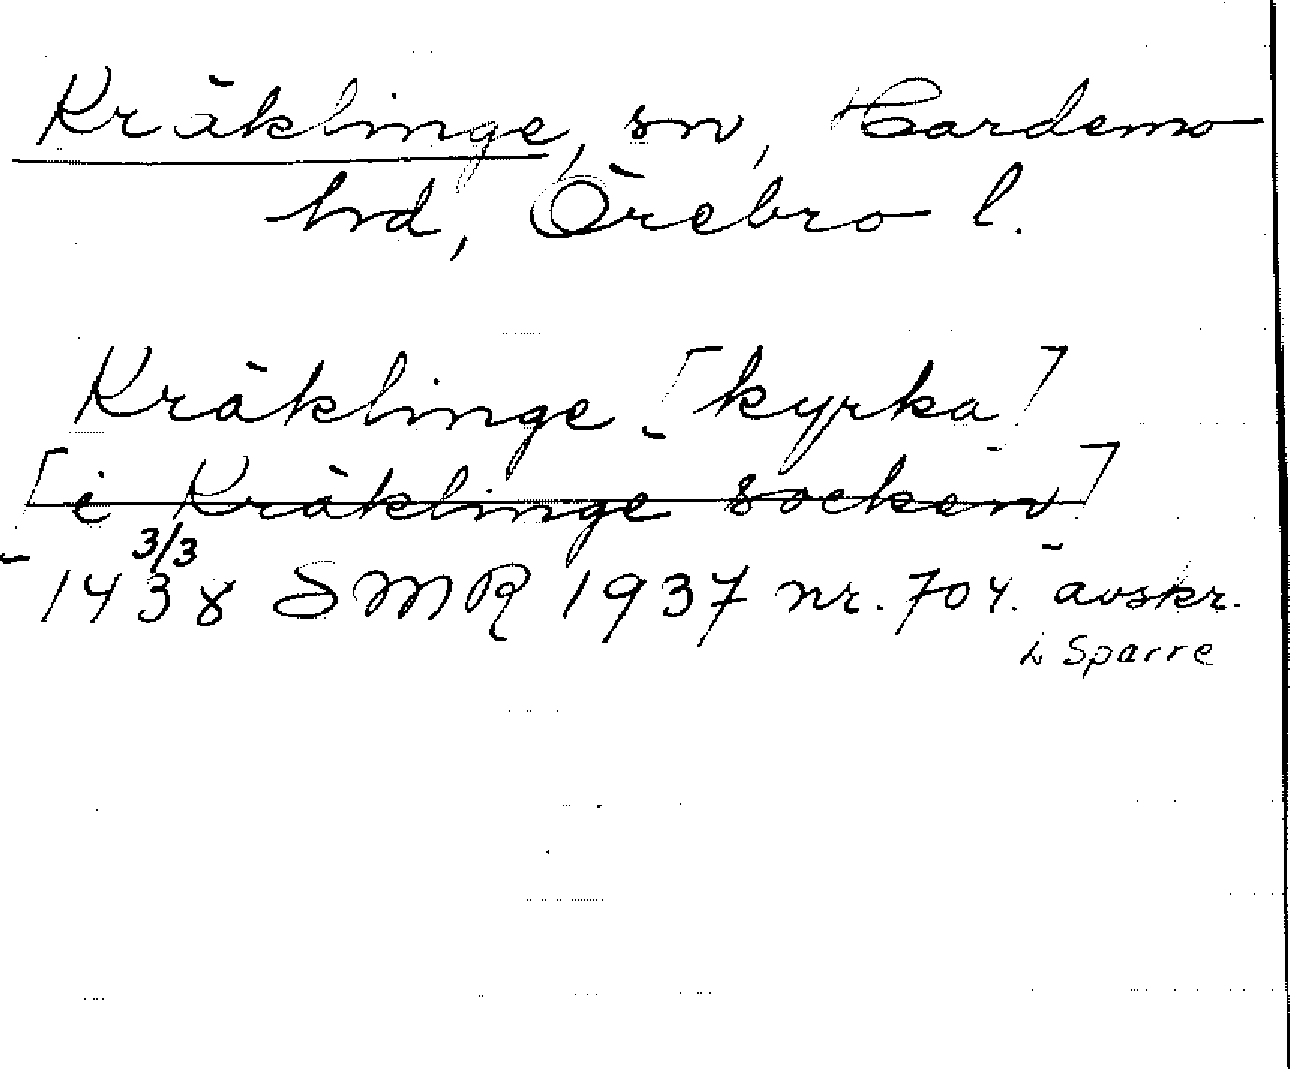 Kräklinge, sn, Hardemo
hd, Örebro l.
Kräklinge [kyrka]
[i Kräklinge socken]
3/3
1438 SMR 1937 nr. 704. avskr.
L Sparre